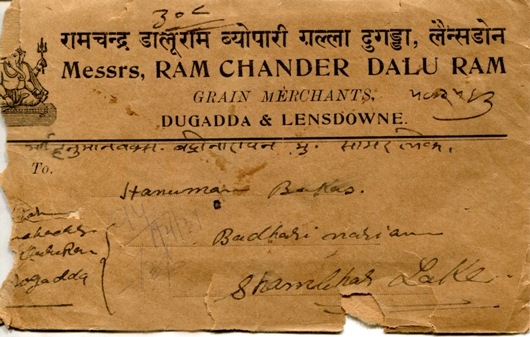 ३०८
रामचन्द्र डालूराम व्योपारी गल्ला दुगड्डा, लैन्सडोन
Messrs, RAM CHANDER DALU RAM
GRAIN MERCHANTS,
DUGADDA & LENSDOWNE.
हनुमानबक्स. बद्रीनारायन मु. सामर लेक.
To.
Hanuman Bakas.
Badhari narian
Shambhar Lake.